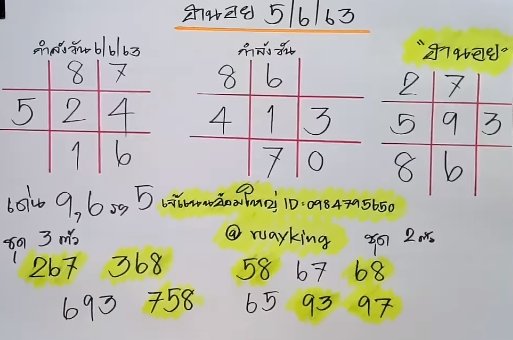 ฮานอย 5/6/63
กำลังวัน 6/6/63
8 7
5 2 4
1 6
กำลังวัน
8 6
4 1 3
7 0
"ฮานอย"
2 7
5 9 3
8 6
เด่น 9,6 รอง 5 ID:0984795650
@ruayking
ชุด 3 ตัว
267 368
693 758
ชุด 2 ตัว
58 67 68
65 93 97